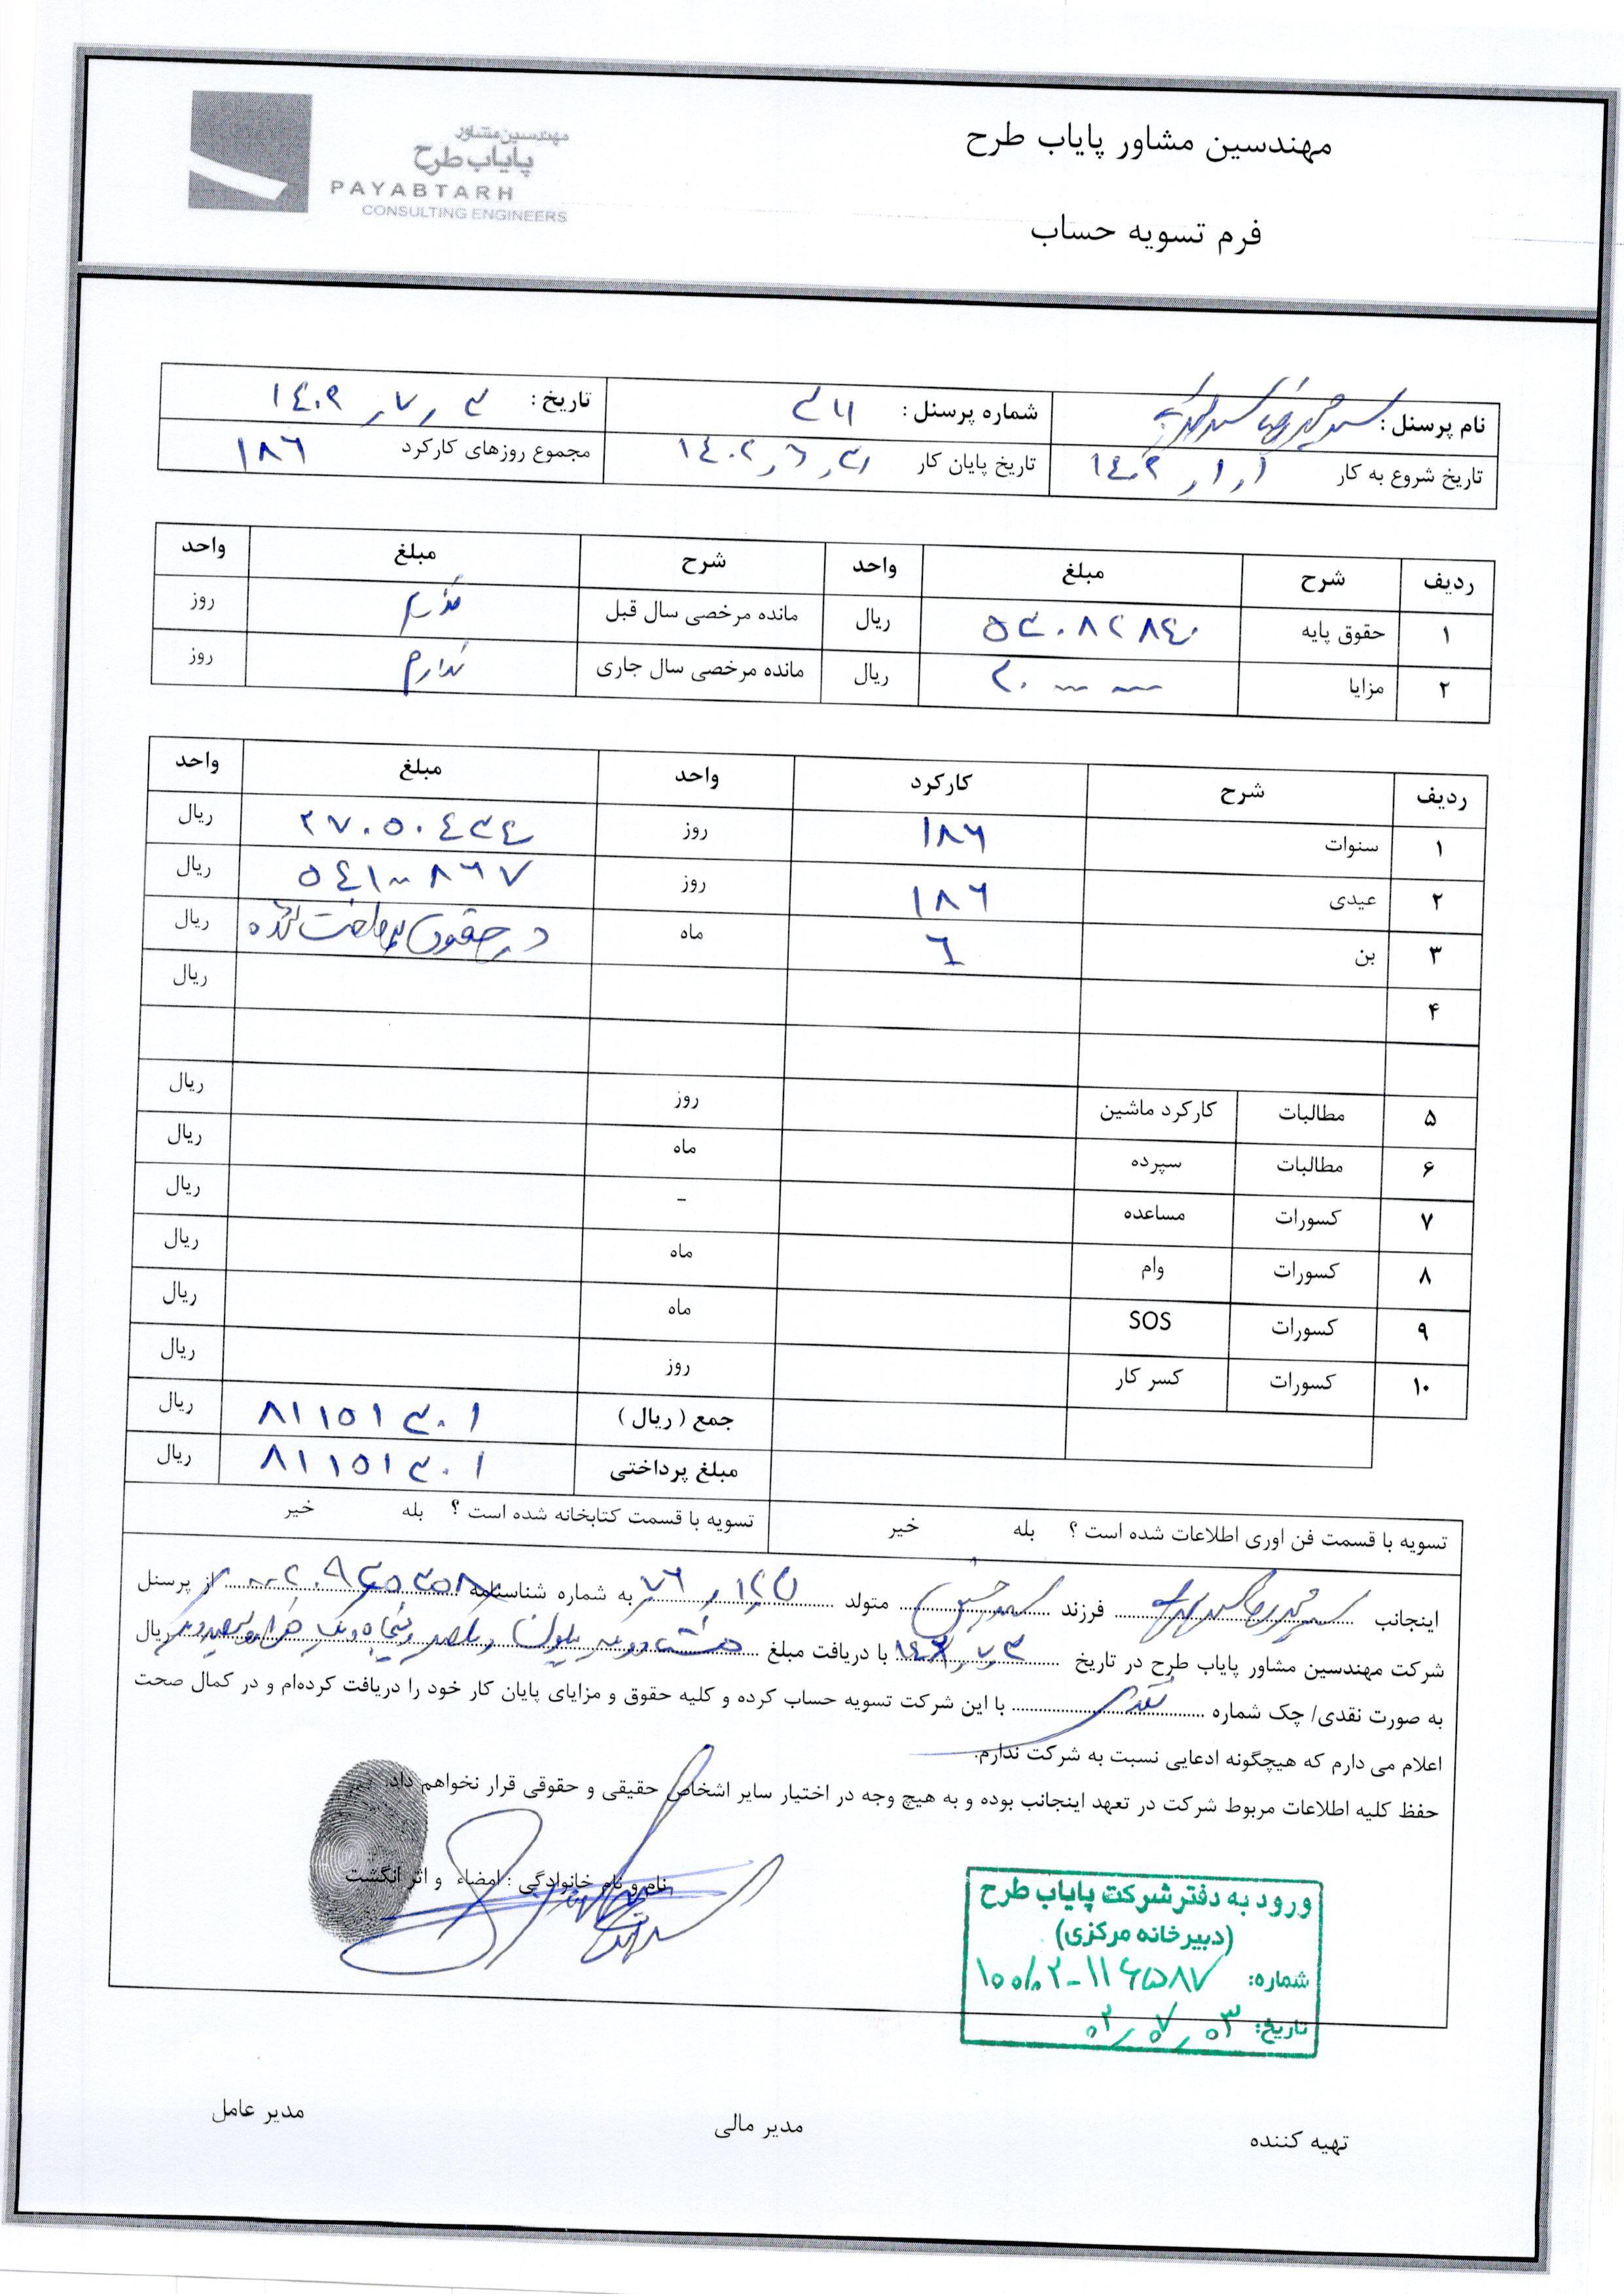 مهندسین مشاور پایاب طرح
مهندسین مشاور
پایاب طرح
PAYABTARH
CONSULTING ENGINEERS
فرم تسویه حساب
نام پرسنل : شماره پرسنل : تاریخ : ۱۴۰۲٫۷٫۳
تاریخ شروع به کار ۱۴۰۲٫۱٫۱ تاریخ پایان کار ۱۴۰۲٫۶٫۳۱ مجموع روزهای کارکرد ۱۸۶
ردیف شرح مبلغ واحد شرح مبلغ واحد
۱ حقوق پایه ۵۳۰۸۲۸۴۰ ریال مانده مرخصی سال قبل ندارم روز
۲ مزایا ریال مانده مرخصی سال جاری ندارم روز
ردیف شرح کارکرد واحد مبلغ واحد
۱ سنوات ۱۸۶ روز ۲۷۰۵۰۴۳۴ ریال
۲ عیدی ۱۸۶ روز ۵۴۱۰۰۸۶۷ ریال
۳ بن ۶ ماه در حقوق پرداخت شده ریال
۴ ریال
۵ مطالبات کارکرد ماشین روز ریال
۶ مطالبات سپرده ماه ریال
۷ کسورات مساعده - ریال
۸ کسورات وام ماه ریال
۹ کسورات SOS ماه ریال
۱۰ کسورات کسر کار روز ریال
جمع ( ریال ) ۸۱۱۵۱۳۰۱ ریال
مبلغ پرداختی ۸۱۱۵۱۳۰۱ ریال
تسویه با قسمت فن اوری اطلاعات شده است ؟ بله خیر تسویه با قسمت کتابخانه شده است ؟ بله خیر
اینجانب فرزند متولد به شماره شناسنامه از پرسنل
شرکت مهندسین مشاور پایاب طرح در تاریخ ۱۴۰۲٫۷٫۳ با دریافت مبلغ هشتاد و یک میلیون و یکصد و پنجاه و یک هزار و سیصد و یک ریال
به صورت نقدی/ چک شماره نقدی با این شرکت تسویه حساب کرده و کلیه حقوق و مزایای پایان کار خود را دریافت کرده‌ام و در کمال صحت
اعلام می دارم که هیچگونه ادعایی نسبت به شرکت ندارم.
حفظ کلیه اطلاعات مربوط شرکت در تعهد اینجانب بوده و به هیچ وجه در اختیار سایر اشخاص حقیقی و حقوقی قرار نخواهم داد.
نام و نام خانوادگی : امضاء و اثر انگشت
ورود به دفتر شرکت پایاب طرح
(دبیرخانه مرکزی)
شماره: ۱۰۰/۰۲-۱۱۶۵۸۷
تاریخ: ۰۲٫۰۷٫۰۳
تهیه کننده مدیر مالی مدیر عامل